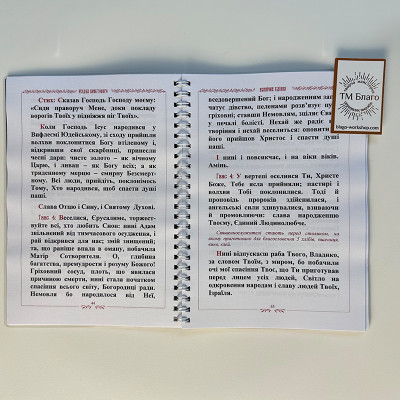 РІЗДВО ХРИСТОВЕ
Стих: Сказав Господь Господу моєму:
«Сиди праворуч Мене, доки покладу
ворогів Твоїх у підніжжя ніг Твоїх».
Коли Господь Ісус народився у
Вифлеємі Юдейському, зі сходу прийшли
волхви поклонитися Богу втіленому і,
відкривши свої скарбниці, принесли
чесні дари: чисте золото – як вічному
Царю, і ливан – як Богу всіх; а як
триденному мерцю – смирну Безсмерт-
ному. Всі люди, прийдіть, поклонімось
Тому, Хто народився, щоб спасти душі
наші.
Слава Отцю і Сину, і Святому Духові.
Глас 4: Веселися, Єрусалиме, торжест-
вуйте всі, хто любить Сион: нині Адам
звільнений від тимчасового осудження, і
рай відкрився для нас; змій знищений,
та, що раніше впала в оману, побачила
Матір Сотворителя. О, глибина
багатства, премудрости і розуму Божого!
Гріховний сосуд, плоть, що явилася
причиною смерти, нині стала початком
спасіння всього світу, Богородиці ради.
Немовля бо народилося від Неї,
44
вседовершений Бог; і народженням за-
чатує дівство, пеленами розв'язує пута
гріховні; ставши Немовлям, зціляє Єви
у печалі болісті. Нехай же радіє все
творіння і нехай веселиться: оновити бо
його прийшов Христос і спасти душі
наші.
І нині і повсякчас, і на віки віків.
Амінь.
Глас 4: У вертепі оселився Ти, Христе
Боже, Тебе ясла прийняли; пастирі і
волхви Тобі поклонилися. Тоді й
проповідь пророків здійснилася, і
ангельські сили здивувалися, взиваючи
й промовляючи: слава народженню
Твоєму, Єдиний Людинолюбче.
Нині відпускаєш раба Твого, Владико,
за словом Твоїм, з миром, бо побачили
очі мої спасіння Твоє, що Ти приготував
перед лицем усіх людей, Світло на
одкровення народам і славу людей Твоїх,
Ізраїля.
45
ТМ Благо
blago-workshop.com